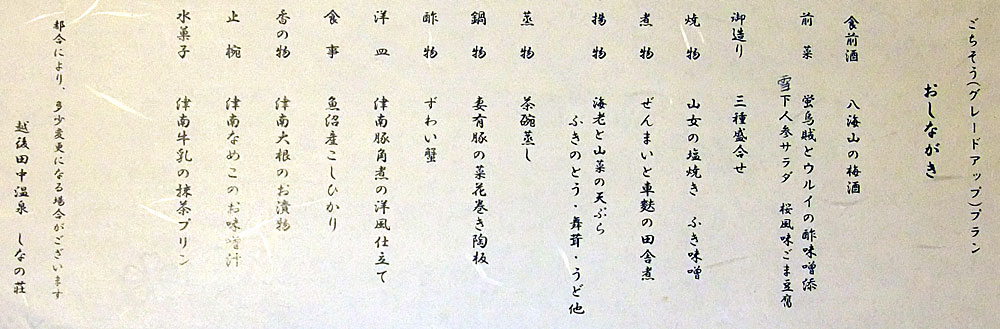 ごちそう(グレードアップ)プラン
おしながき
食前酒 八海山の梅酒
前菜 蛍烏賊とウルイの酢味噌添
雪下人参サラダ 桜風味ごま豆腐
御造り 三種盛合せ
焼物 山女の塩焼き ふき味噌
煮物 ぜんまいと車麩の田舎煮
揚物 海老と山菜の天ぷら
ふきのとう・舞茸・うど他
蒸物 茶碗蒸し
鍋物 妻有豚の菜花巻き陶板
酢物 ずわい蟹
洋皿 津南豚角煮の洋風仕立て
食事 魚沼産こしひかり
香の物 津南大根のお漬物
止椀 津南なめこのお味噌汁
水菓子 津南牛乳の抹茶プリン
都合により、多少変更になる場合がございます
越後田中温泉 しなの荘